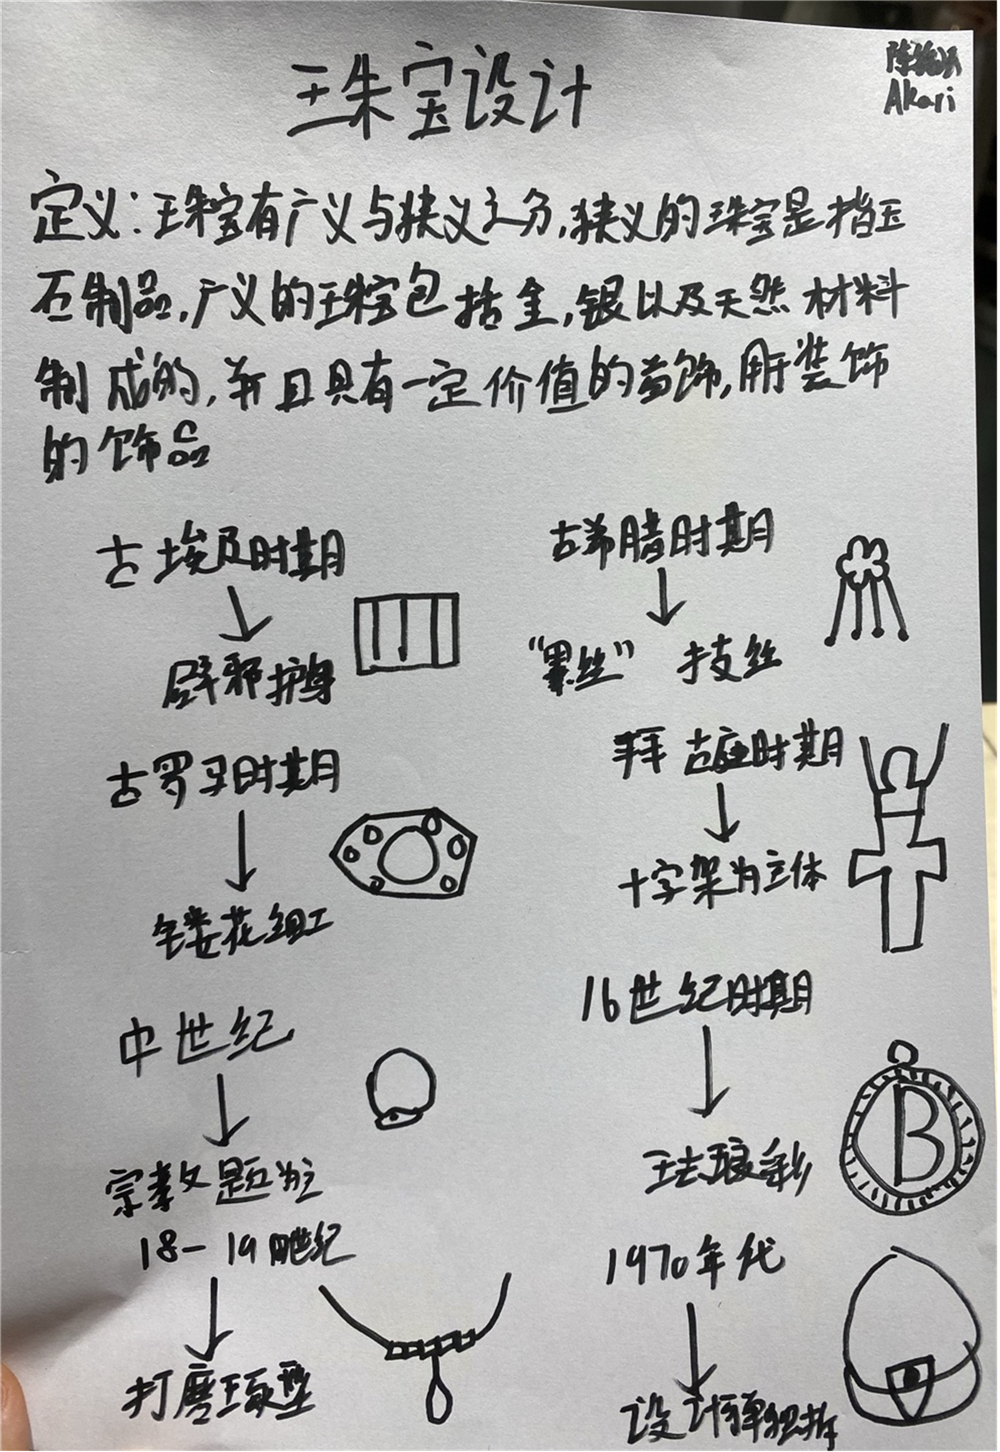 珠宝设计
Akari
定义:珠宝有广义与狭义之分,狭义的珠宝是指玉
石制品,广义的珠宝包括金,银以及天然材料
制成的,并且具有一定价值的首饰,用于装饰
的饰品
古埃及时期
辟邪护身
古希腊时期
“累丝” 技丝
古罗马时期
镂花组工
拜占庭时期
十字架为立体
中世纪
宗教题为主
16世纪时期
珐琅彩
18-19世纪
打磨琢型
1970年代
设计